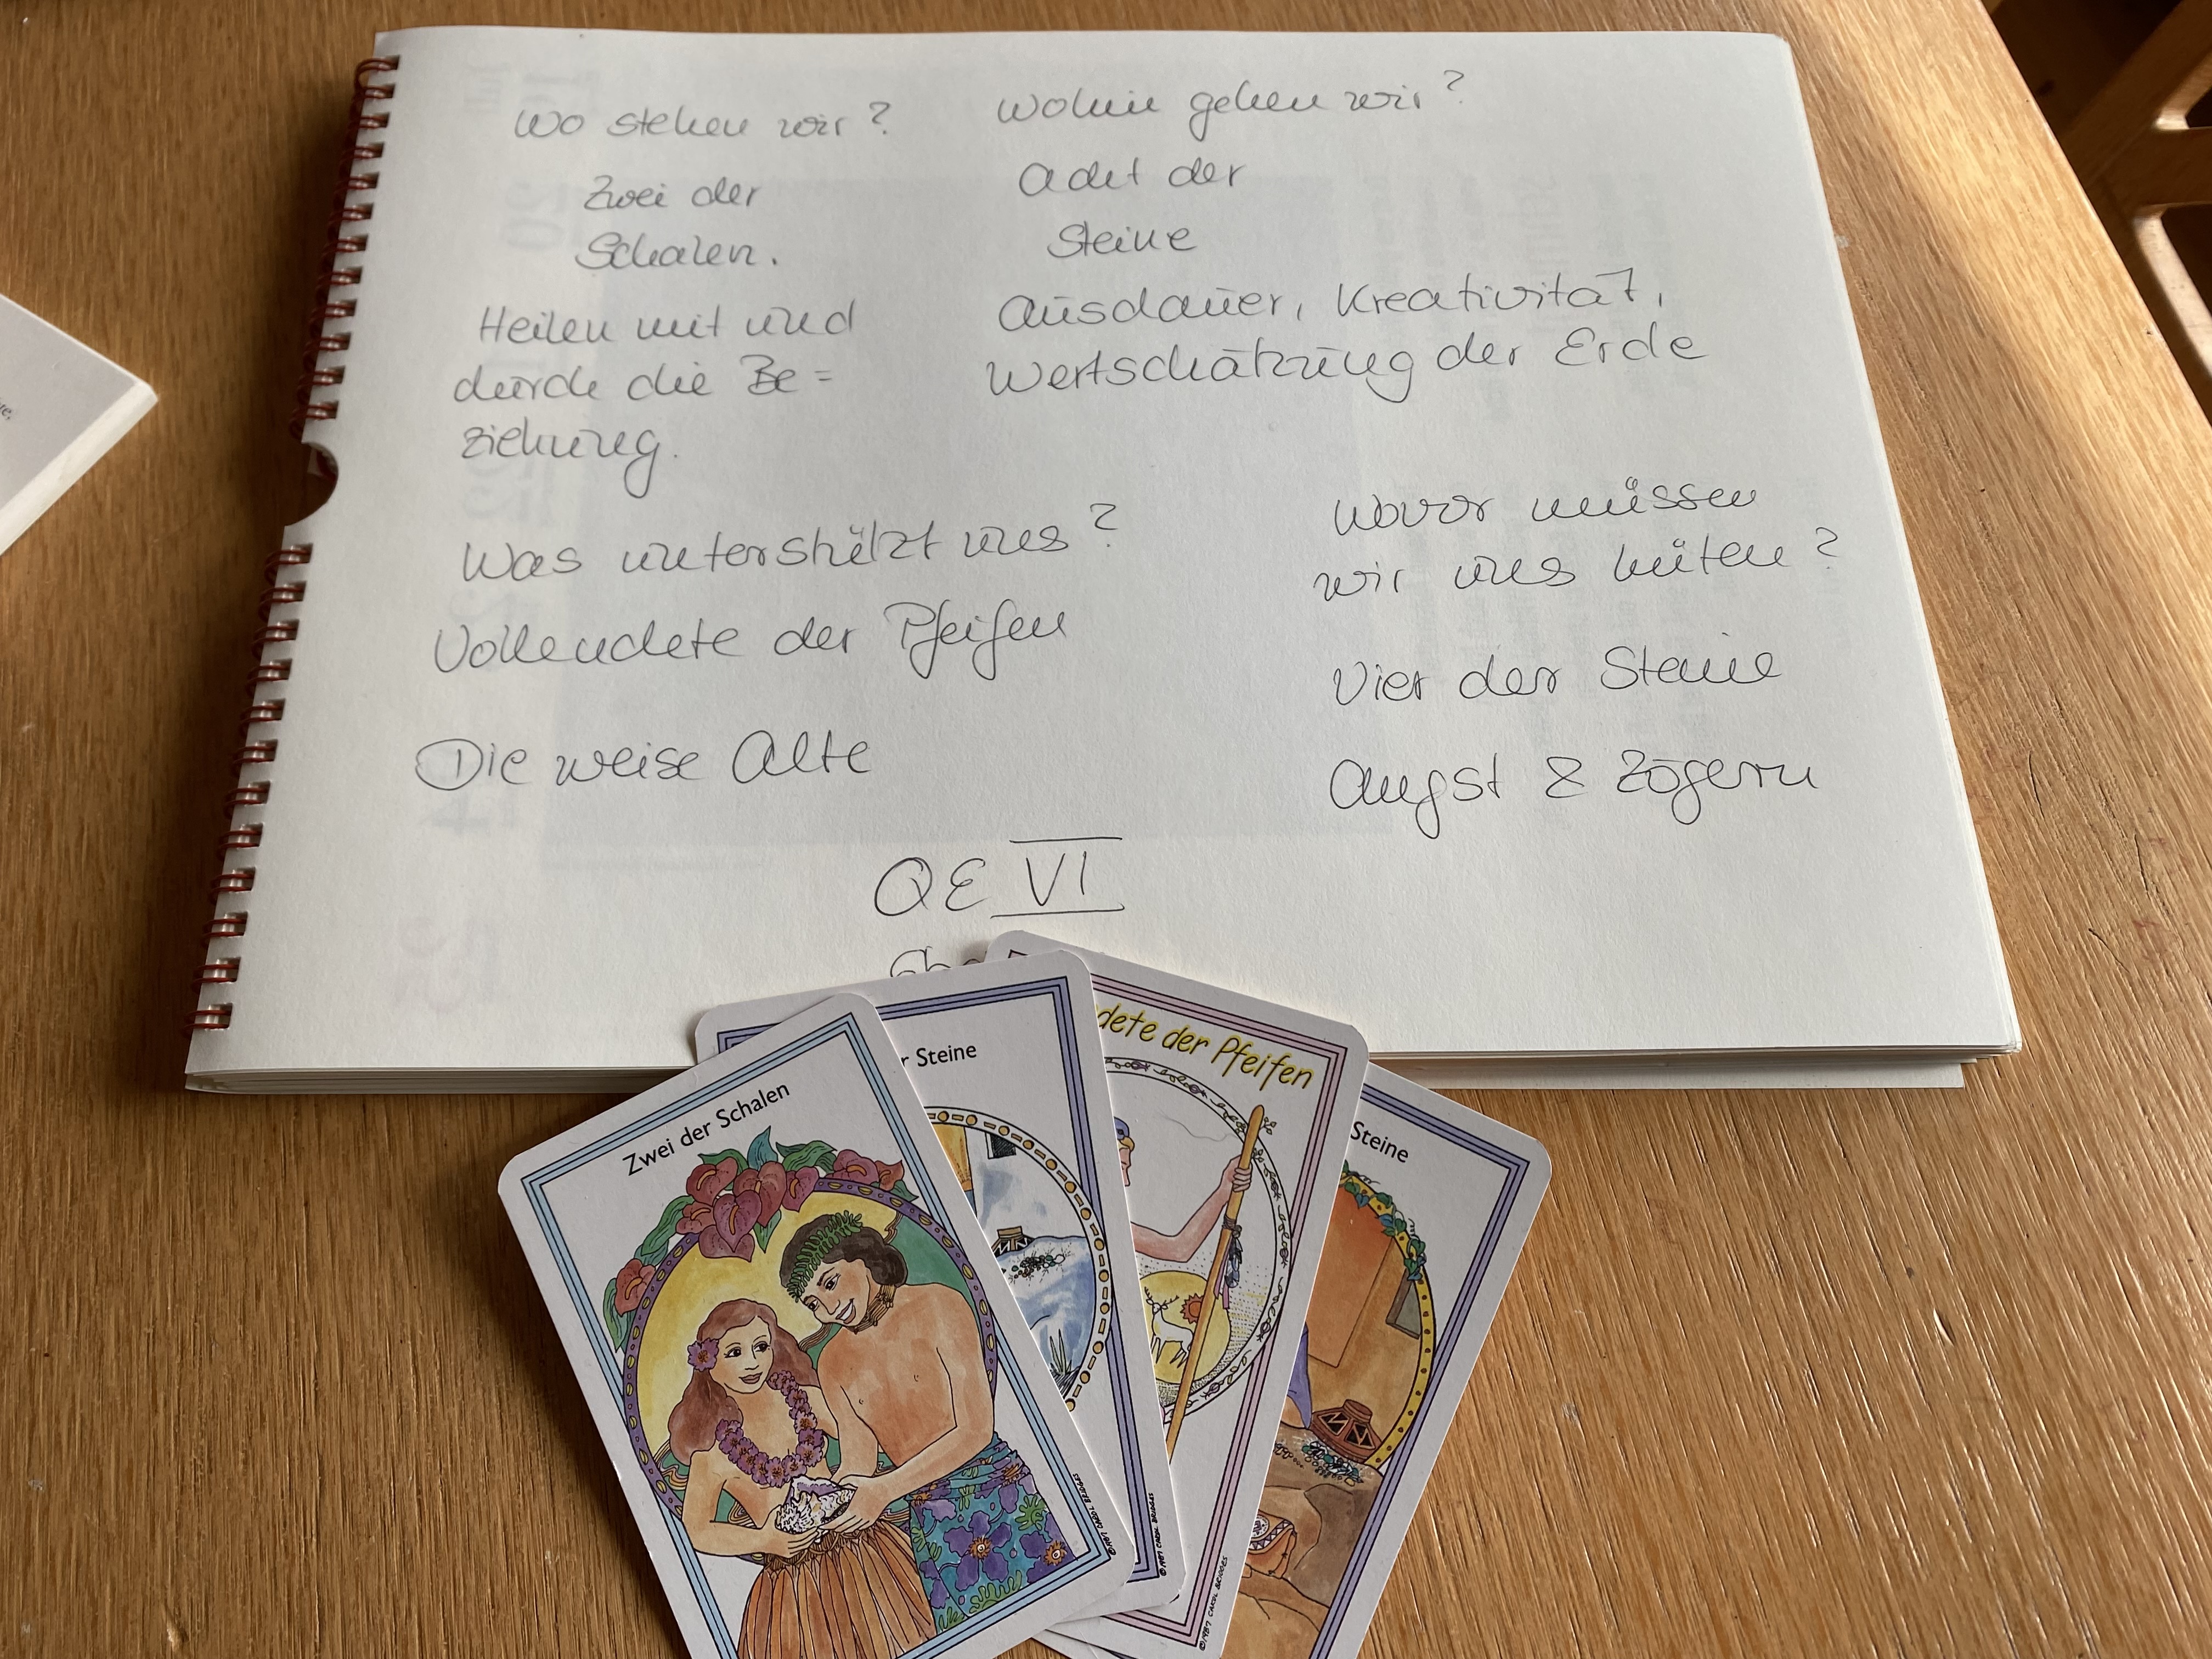 Wo stehen wir?
Zwei der
Schalen.
Heilen mit und
durch die Be=
ziehung.
Wohin gehen wir?
Acht der
Steine
Ausdauer, Kreativität,
Wertschätzung der Erde
Was unterstützt uns?
Vollendete der Pfeifen
Die weise Alte
Wovor müssen
wir uns hüten?
Vier der Steine
Angst & Zögern
QE VI
Zwei der Schalen
r Steine
dete der Pfeifen
Steine
©1987 CAROL BRIDGES
©1987 CAROL BRIDGES
©1987 CAROL BRIDGES